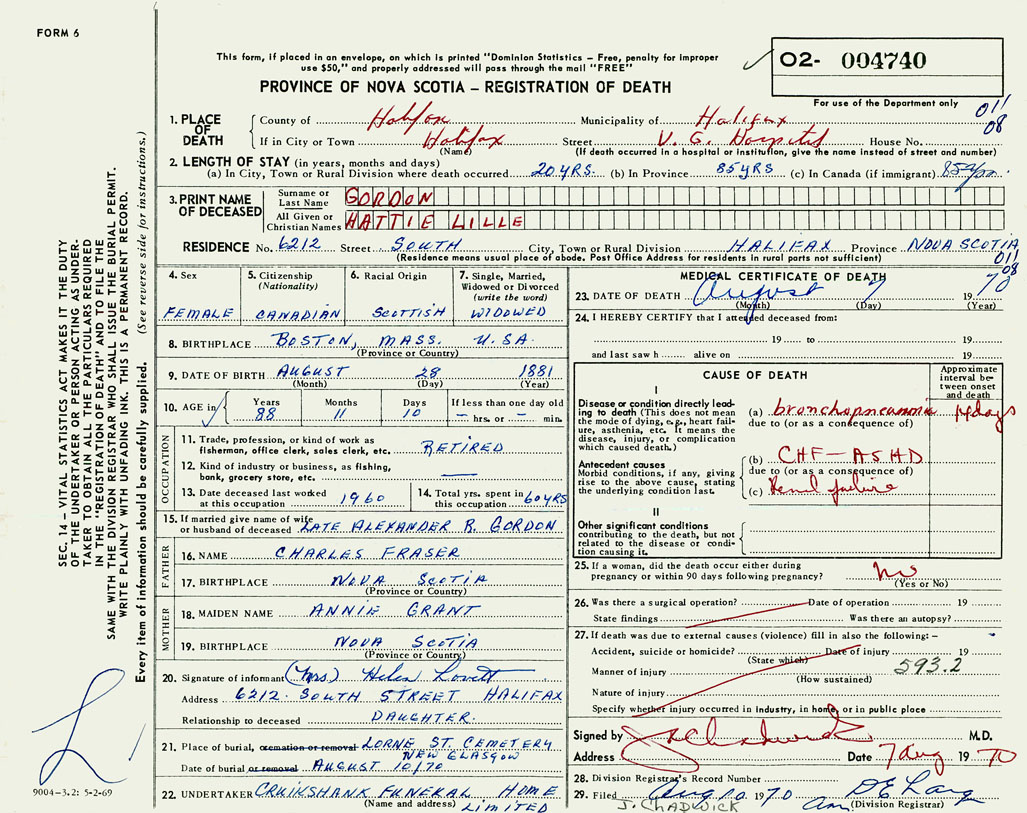 FORM 6
This form, if placed in an envelope, on which is printed "Dominion Statistics – Free, penalty for improper
use $50," and properly addressed will pass through the mail "FREE"
PROVINCE OF NOVA SCOTIA – REGISTRATION OF DEATH
O2- 004740
For use of the Department only
011
08
1. PLACE OF DEATH
County of Halifax Municipality of Halifax
If in City or Town Halifax Street V. G. Hospital House No.
(Name) (If death occurred in a hospital or institution, give the name instead of street and number)
2. LENGTH OF STAY (in years, months and days)
(a) In City, Town or Rural Division where death occurred 20 YRS. (b) In Province 85 YRS (c) In Canada (if immigrant) 85 yrs.
3. PRINT NAME OF DECEASED
Surname or Last Name GORDON
All Given or Christian Names HATTIE LILLE
RESIDENCE No. 6212 Street SOUTH City, Town or Rural Division HALIFAX Province NOVA SCOTIA
(Residence means usual place of abode. Post Office Address for residents in rural parts not sufficient)
011
08
4. Sex
FEMALE
5. Citizenship
(Nationality)
CANADIAN
6. Racial Origin
SCOTTISH
7. Single, Married,
Widowed or Divorced
(write the word)
WIDOWED
8. BIRTHPLACE BOSTON, MASS. U.S.A.
(Province or Country)
9. DATE OF BIRTH AUGUST 28 1881
(Month) (Day) (Year)
10. AGE in Years Months Days If less than one day
88 11 10 – hrs. or – min.
OCCUPATION
11. Trade, profession, or kind of work as
fisherman, office clerk, sales clerk, etc. RETIRED
12. Kind of industry or business, as fishing,
bank, grocery store, etc. —
13. Date deceased last worked
at this occupation 1960
14. Total yrs. spent in
this occupation 60 YRS
15. If married give name of wife
or husband of deceased LATE ALEXANDER R. GORDON
FATHER
16. NAME CHARLES FRASER
17. BIRTHPLACE NOVA SCOTIA
(Province or Country)
MOTHER
18. MAIDEN NAME ANNIE GRANT
19. BIRTHPLACE NOVA SCOTIA
(Province or Country)
20. Signature of informant (Mrs) Helen Lovett
Address 6212 SOUTH STREET HALIFAX
Relationship to deceased DAUGHTER.
21. Place of burial, cremation or removal LORNE ST. CEMETERY
NEW GLASGOW
Date of burial or removal AUGUST 10/70
22. UNDERTAKER CRUIKSHANK FUNERAL HOME
(Name and address) LIMITED
MEDICAL CERTIFICATE OF DEATH
23. DATE OF DEATH August 7 1970
(Month) (Day) (Year)
24. I HEREBY CERTIFY that I attended deceased from:
19 to 19
and last saw h alive on 19
CAUSE OF DEATH
Approximate
interval be-
tween onset
and death
I
Disease or condition directly lead-
ing to death (This does not mean
the mode of dying, e.g., heart fail-
ure, asthenia, etc. It means the
disease, injury, or complication
which caused death.)
(a) bronchopneumonia 14 days
due to (or as a consequence of)
Antecedent causes
Morbid conditions, if any, giving
rise to the above cause, stating
the underlying condition last.
(b) CHF – ASHD
due to (or as a consequence of)
(c) Renal failure
II
Other significant conditions
contributing to the death, but not
related to the disease or condi-
tion causing it.
25. If a woman, did the death occur either during
pregnancy or within 90 days following pregnancy? no
(Yes or No)
26. Was there a surgical operation? Date of operation 19
State findings Was there an autopsy?
27. If death was due to external causes (violence) fill in also the following: –
Accident, suicide or homicide? Date of injury 19
(State which)
Manner of injury 593.2
(How sustained)
Nature of injury
Specify whether injury occurred in industry, in home, or in public place
Signed by J Chadwick M.D.
Address Date 7 Aug 1970
28. Division Registrar's Record Number
29. Filed Aug 10 1970 D E Lang
J. CHADWICK (Division Registrar)
SEC. 14 – VITAL STATISTICS ACT MAKES IT THE DUTY
OF THE UNDERTAKER OR PERSON ACTING AS UNDER-
TAKER TO OBTAIN ALL THE PARTICULARS REQUIRED
IN THE "REGISTRATION OF DEATH" AND TO FILE THE
SAME WITH THE DIVISION REGISTRAR WHO SHALL ISSUE THE BURIAL PERMIT.
WRITE PLAINLY WITH UNFADING INK. THIS IS A PERMANENT RECORD.
Every item of information should be carefully supplied. (See reverse side for instructions.)
9004-3.2: 5-2-69